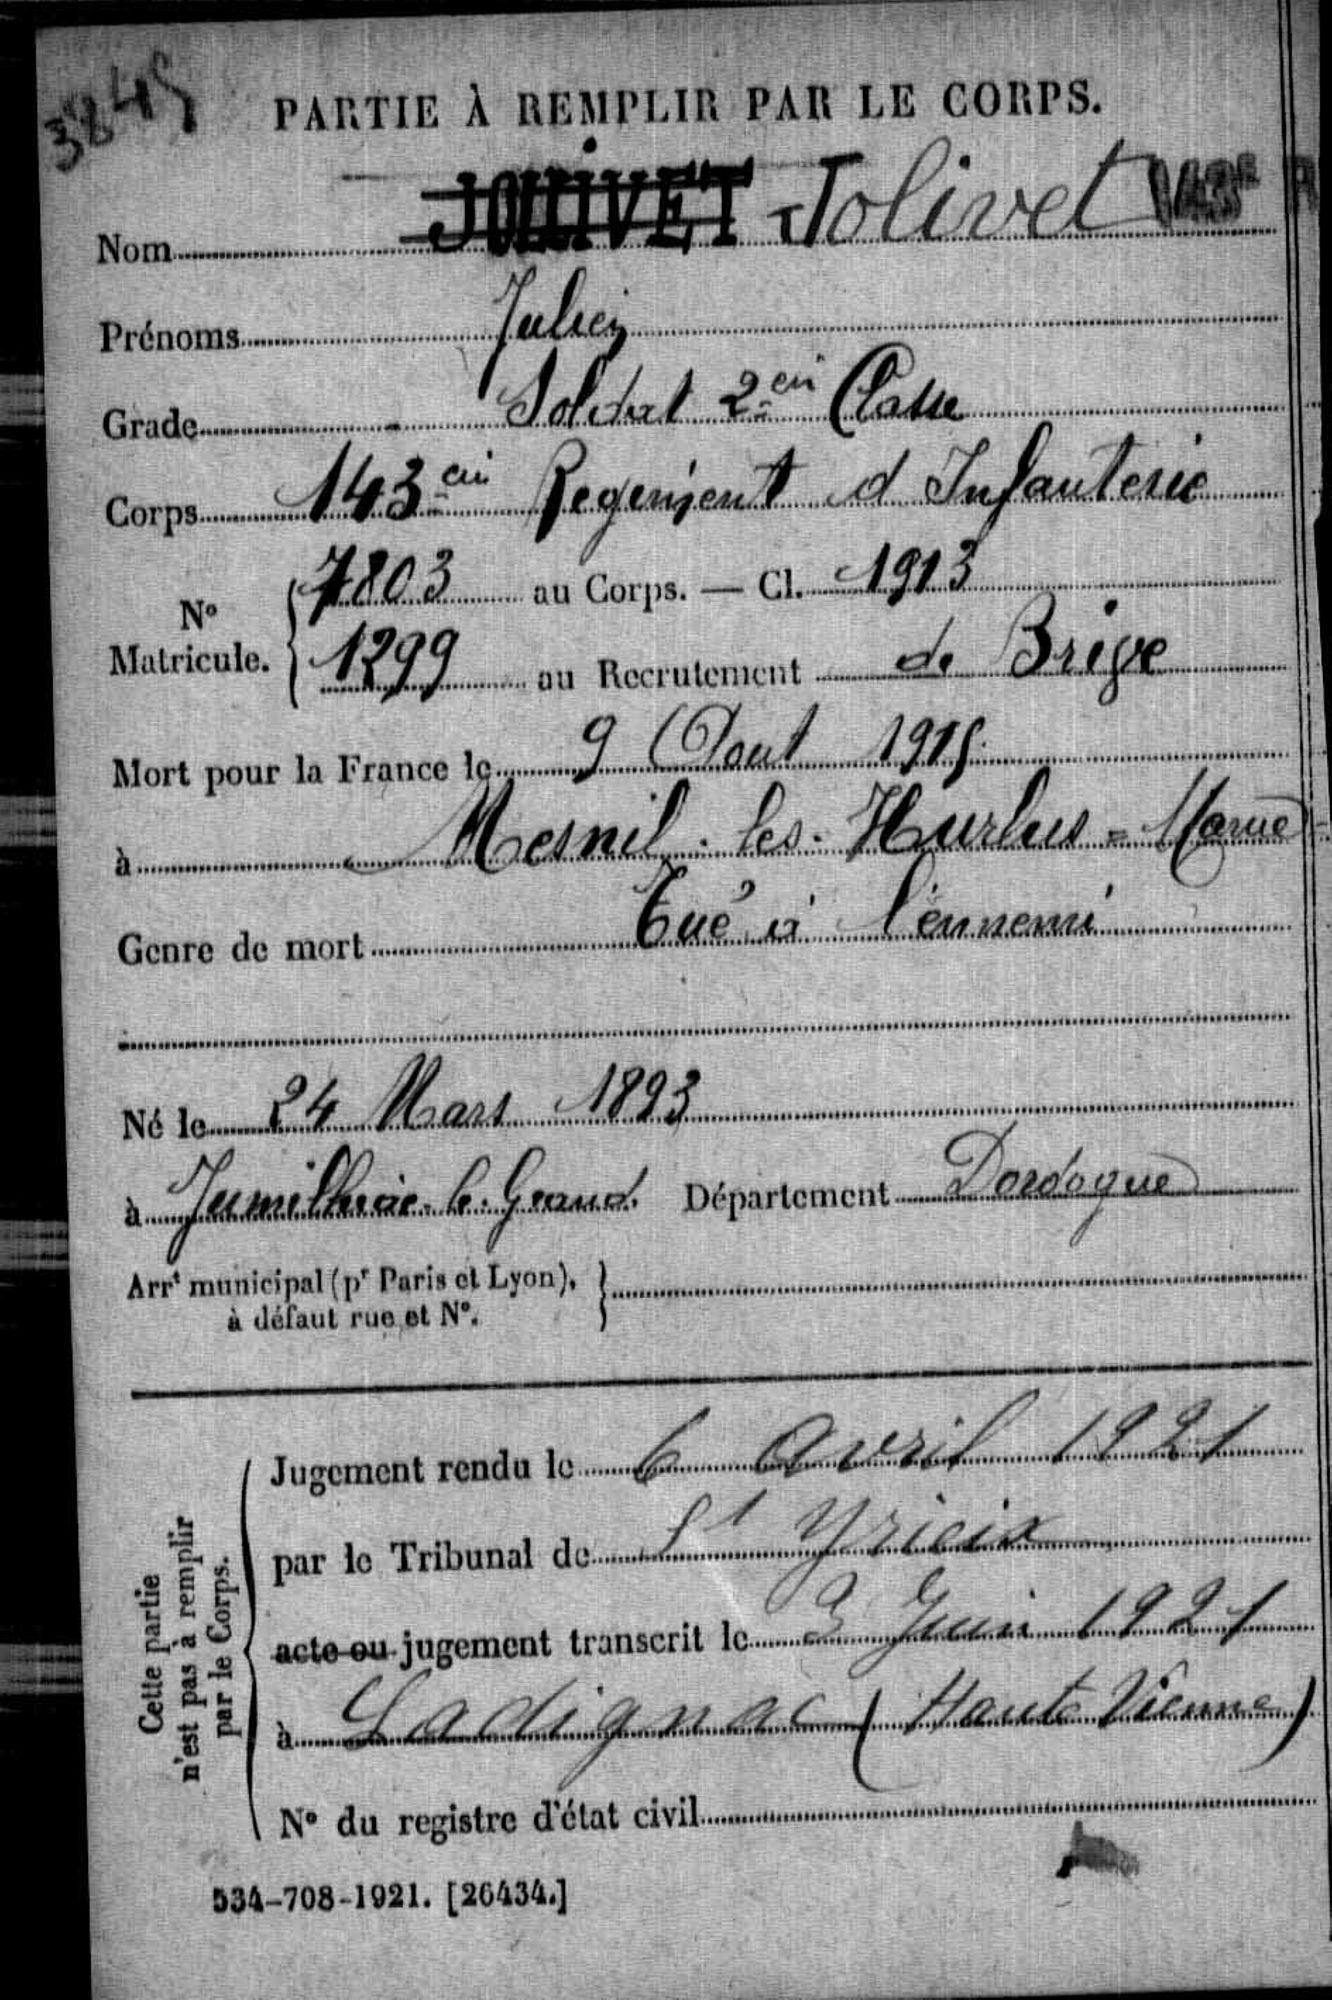 3845
PARTIE À REMPLIR PAR LE CORPS.
Nom JOLIVET Jolivet 143e R
Prénoms Julien
Grade Soldat 2em Classe
Corps 143em Regiment d Infanterie
No Matricule. { 7803 au Corps. — Cl. 1913
1299 au Recrutement de Brive
Mort pour la France le 9 Aout 1915.
à Mesnil-les-Hurlus = Marne
Genre de mort Tué à l'ennemi
Né le 24 Mars 1893
à Jumilhac-le-Grand. Département Dordogne
Arrt municipal (pr Paris et Lyon), }
à défaut rue et No.
Cette partie
n'est pas à remplir
par le Corps.
Jugement rendu le 6 Avril 1921
par le Tribunal de St Yrieix
acte ou jugement transcrit le 3 Juin 1921
à Ladignac (Haute Vienne)
No du registre d'état civil
534-708-1921. [26434.]